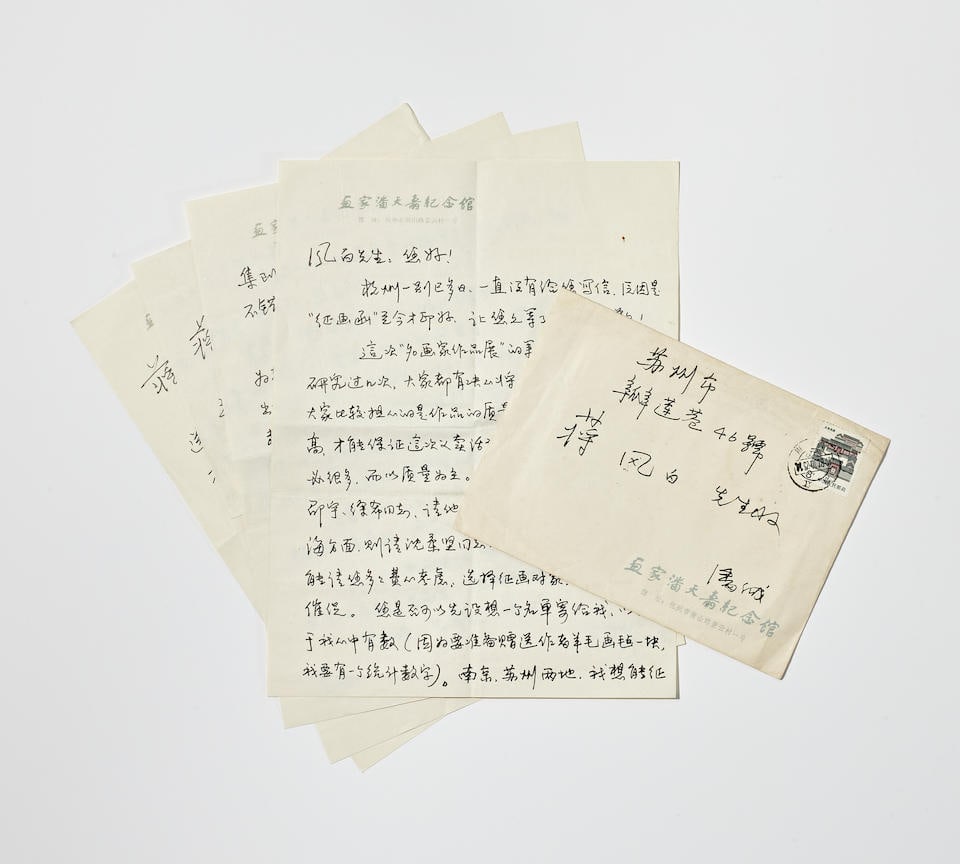 画家潘天寿纪念馆
馆 址：杭州市南山路景云村一号
风白先生：您好！
杭州一别已多日，一直没有给您写信，原因是
“征画函”至今才印好，让您久等了
这次“名画家作品展”的事
研究过几次，大家都有决心将
大家比较担心的是作品的质量
高，才能保证这次义卖活
必很多，而以质量为主。
邵宇、徐希同志，请他
海方面，则请沈柔坚同志
能请您多多费心考虑，选择征画对象
催促。您是否可以先设想一个名单寄给我，以
于我心中有数（因为要准备赠送作者羊毛画毡一块，
我要有一个统计数字）。南京、苏州两地，我想能征
画
集
不错
为
蒋
蒋
苏州市
瓣莲巷46號
蒋
风白 先生收
潘
画家潘天寿纪念馆
馆 址：杭州市南山路景云村一号